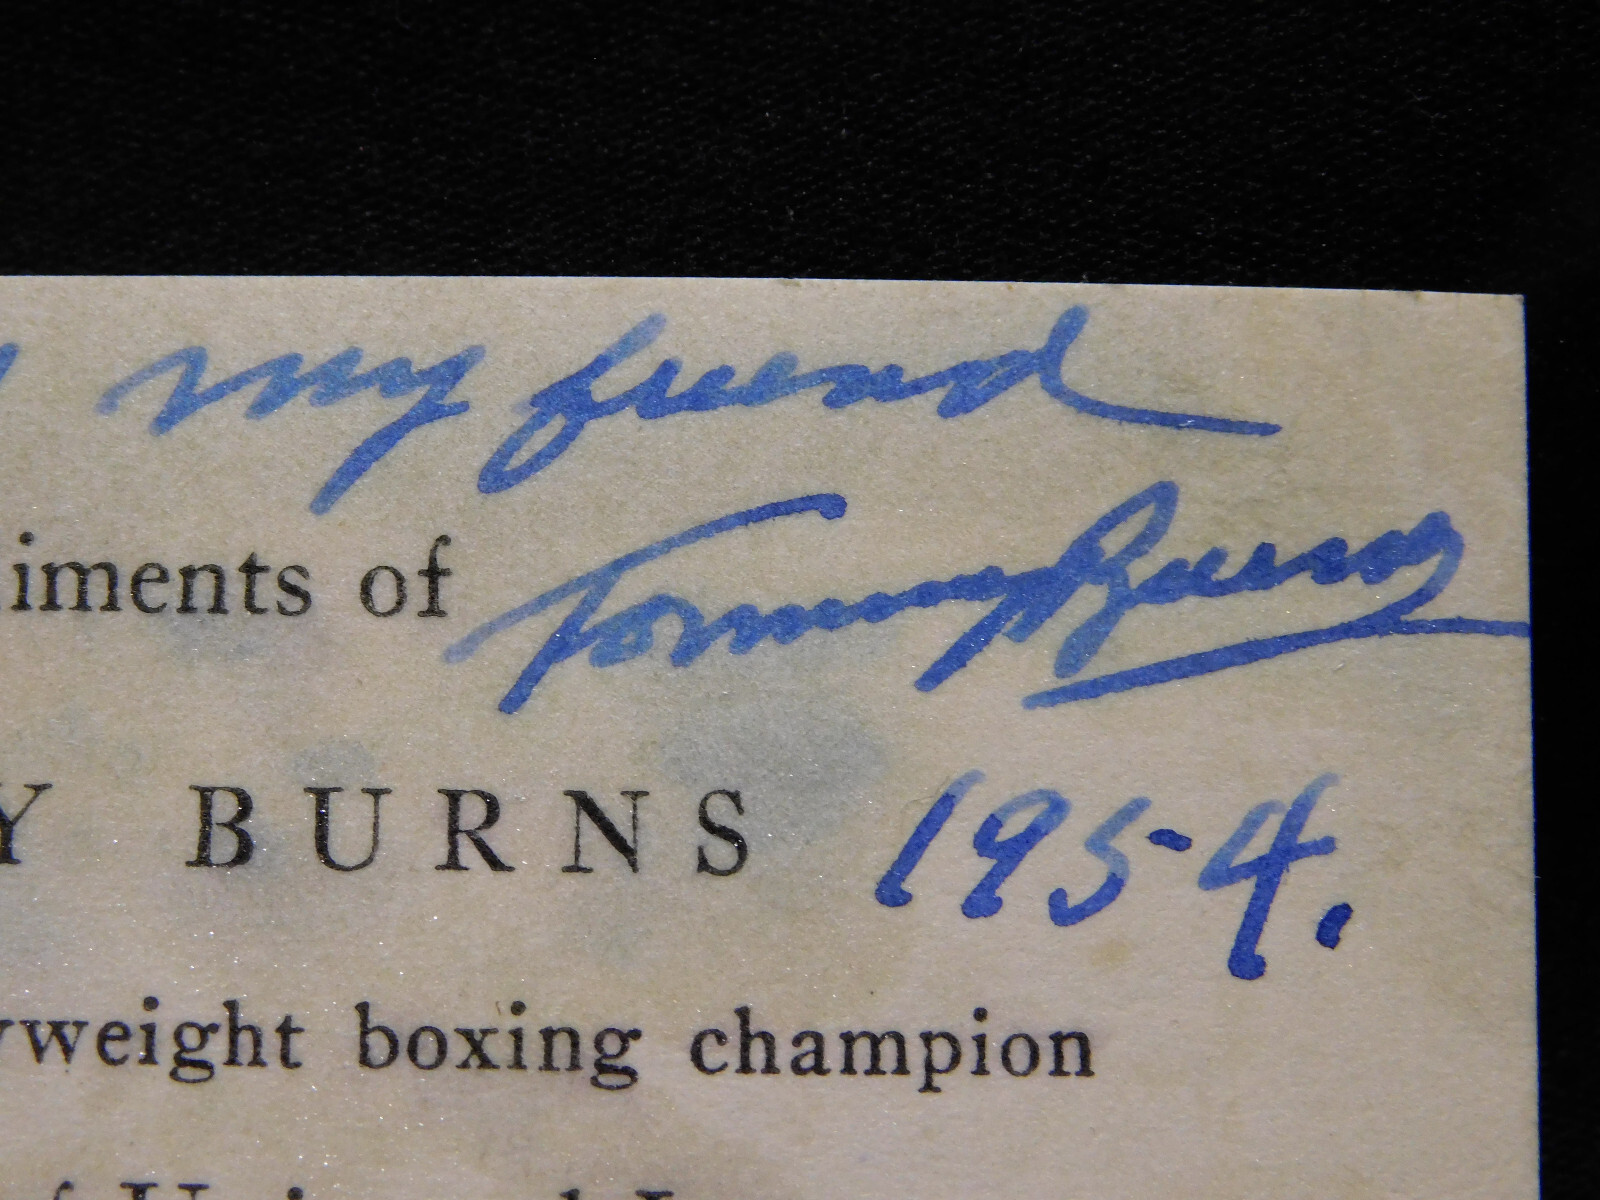 my friend
iments of Tommy Burns
Y BURNS 1954.
weight boxing champion